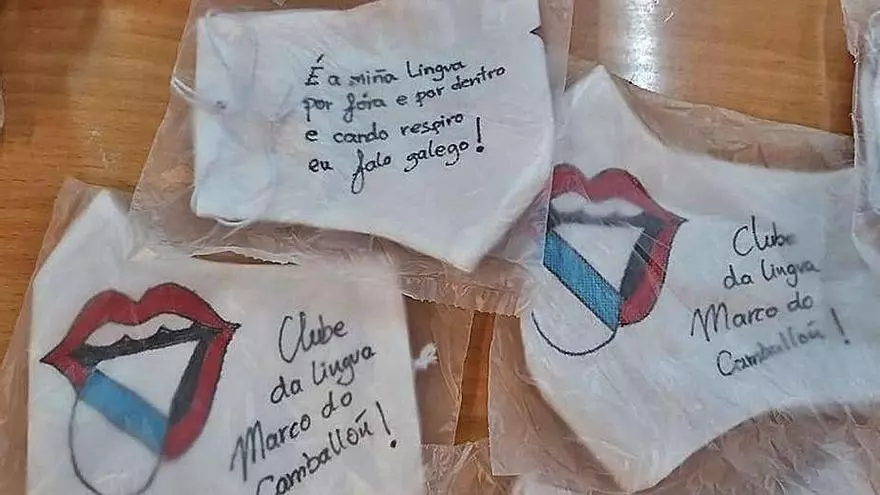 É a miña Lingua
por fóra e por dentro
e cando respiro
eu falo galego!
Clube
da Lingua
Marco do
Camballón!
Clube
da Lingua
Marco do
Camballón!